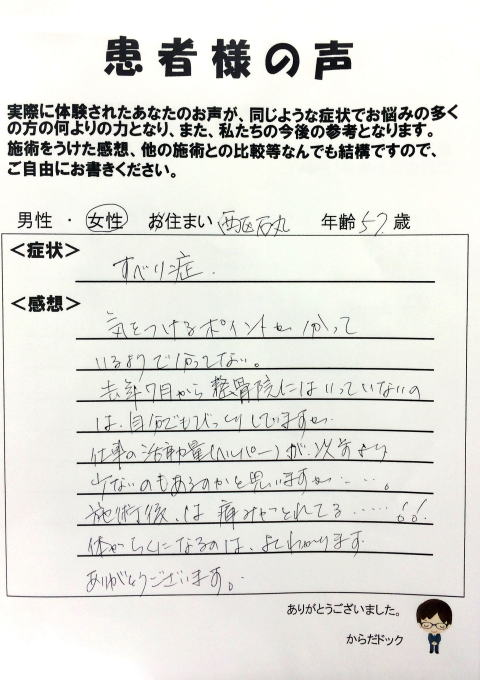 患者様の声
実際に体験されたあなたのお声が、同じような症状でお悩みの多く
の方の何よりの力となり、また、私たちの今後の参考となります。
施術をうけた感想、他の施術との比較等なんでも結構ですので、
ご自由にお書きください。
男性 ・ 女性 お住まい 西区石丸 年齢 57 歳
<症状>
すべり症.
<感想>
気をつけるポイントを分かって
いるようで分ってない。
去年7月から整骨院にはいっていないの
は、自分でもびっくりしていますが
仕事の活動量(ヘルパー)が、以前より
少ないのもあるのかと思いますが・・・。
施術後、は痛みがとれてる・・・・・
体がらくになるのは、よくわかります
ありがとうございます。
ありがとうございました。
からだドック